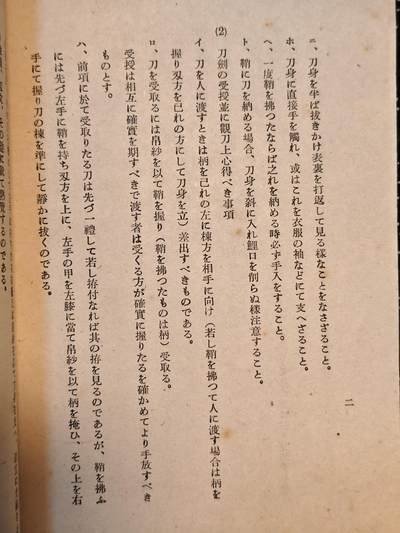 二
ニ、刀身を半ば拔きかけ表裏を打返して見る樣なことをなさざること。
ホ、刀身に直接手を觸れ、或はこれを衣服の袖などにて支へざること。
ヘ、一度鞘を拂つたならば之れを納める時必ず手入をすること。
ト、鞘に刀を納める場合、刀身を斜に入れ鯉口を削らぬ樣注意すること。
(2) 刀劍の受授並に觀刀上心得べき事項
イ、刀を人に渡すときは柄を己れの左に棟方を相手に向け（若し鞘を拂つて人に渡す場合は柄を
握り刄方を己れの方にして刀身を立）差出すべきものである。
ロ、刀を受取るには帛紗を以て鞘を握り（鞘を拂つたものは柄）受取る。
受授は相互に確實を期すべきで渡す者は受くる方が確實に握りたるを確かめてより手放すべき
ものとす。
ハ、前項に於て受取りたる刀は先づ一禮して若し拵付なれば其の拵を見るのであるが、鞘を拂ふ
には先づ左手に鞘を持ち刄方を上に、左手の甲を左膝に當て帛紗を以て柄を掩ひ、その上を右
手にて握り刀の棟を準にして靜かに拔くのである。
のである。